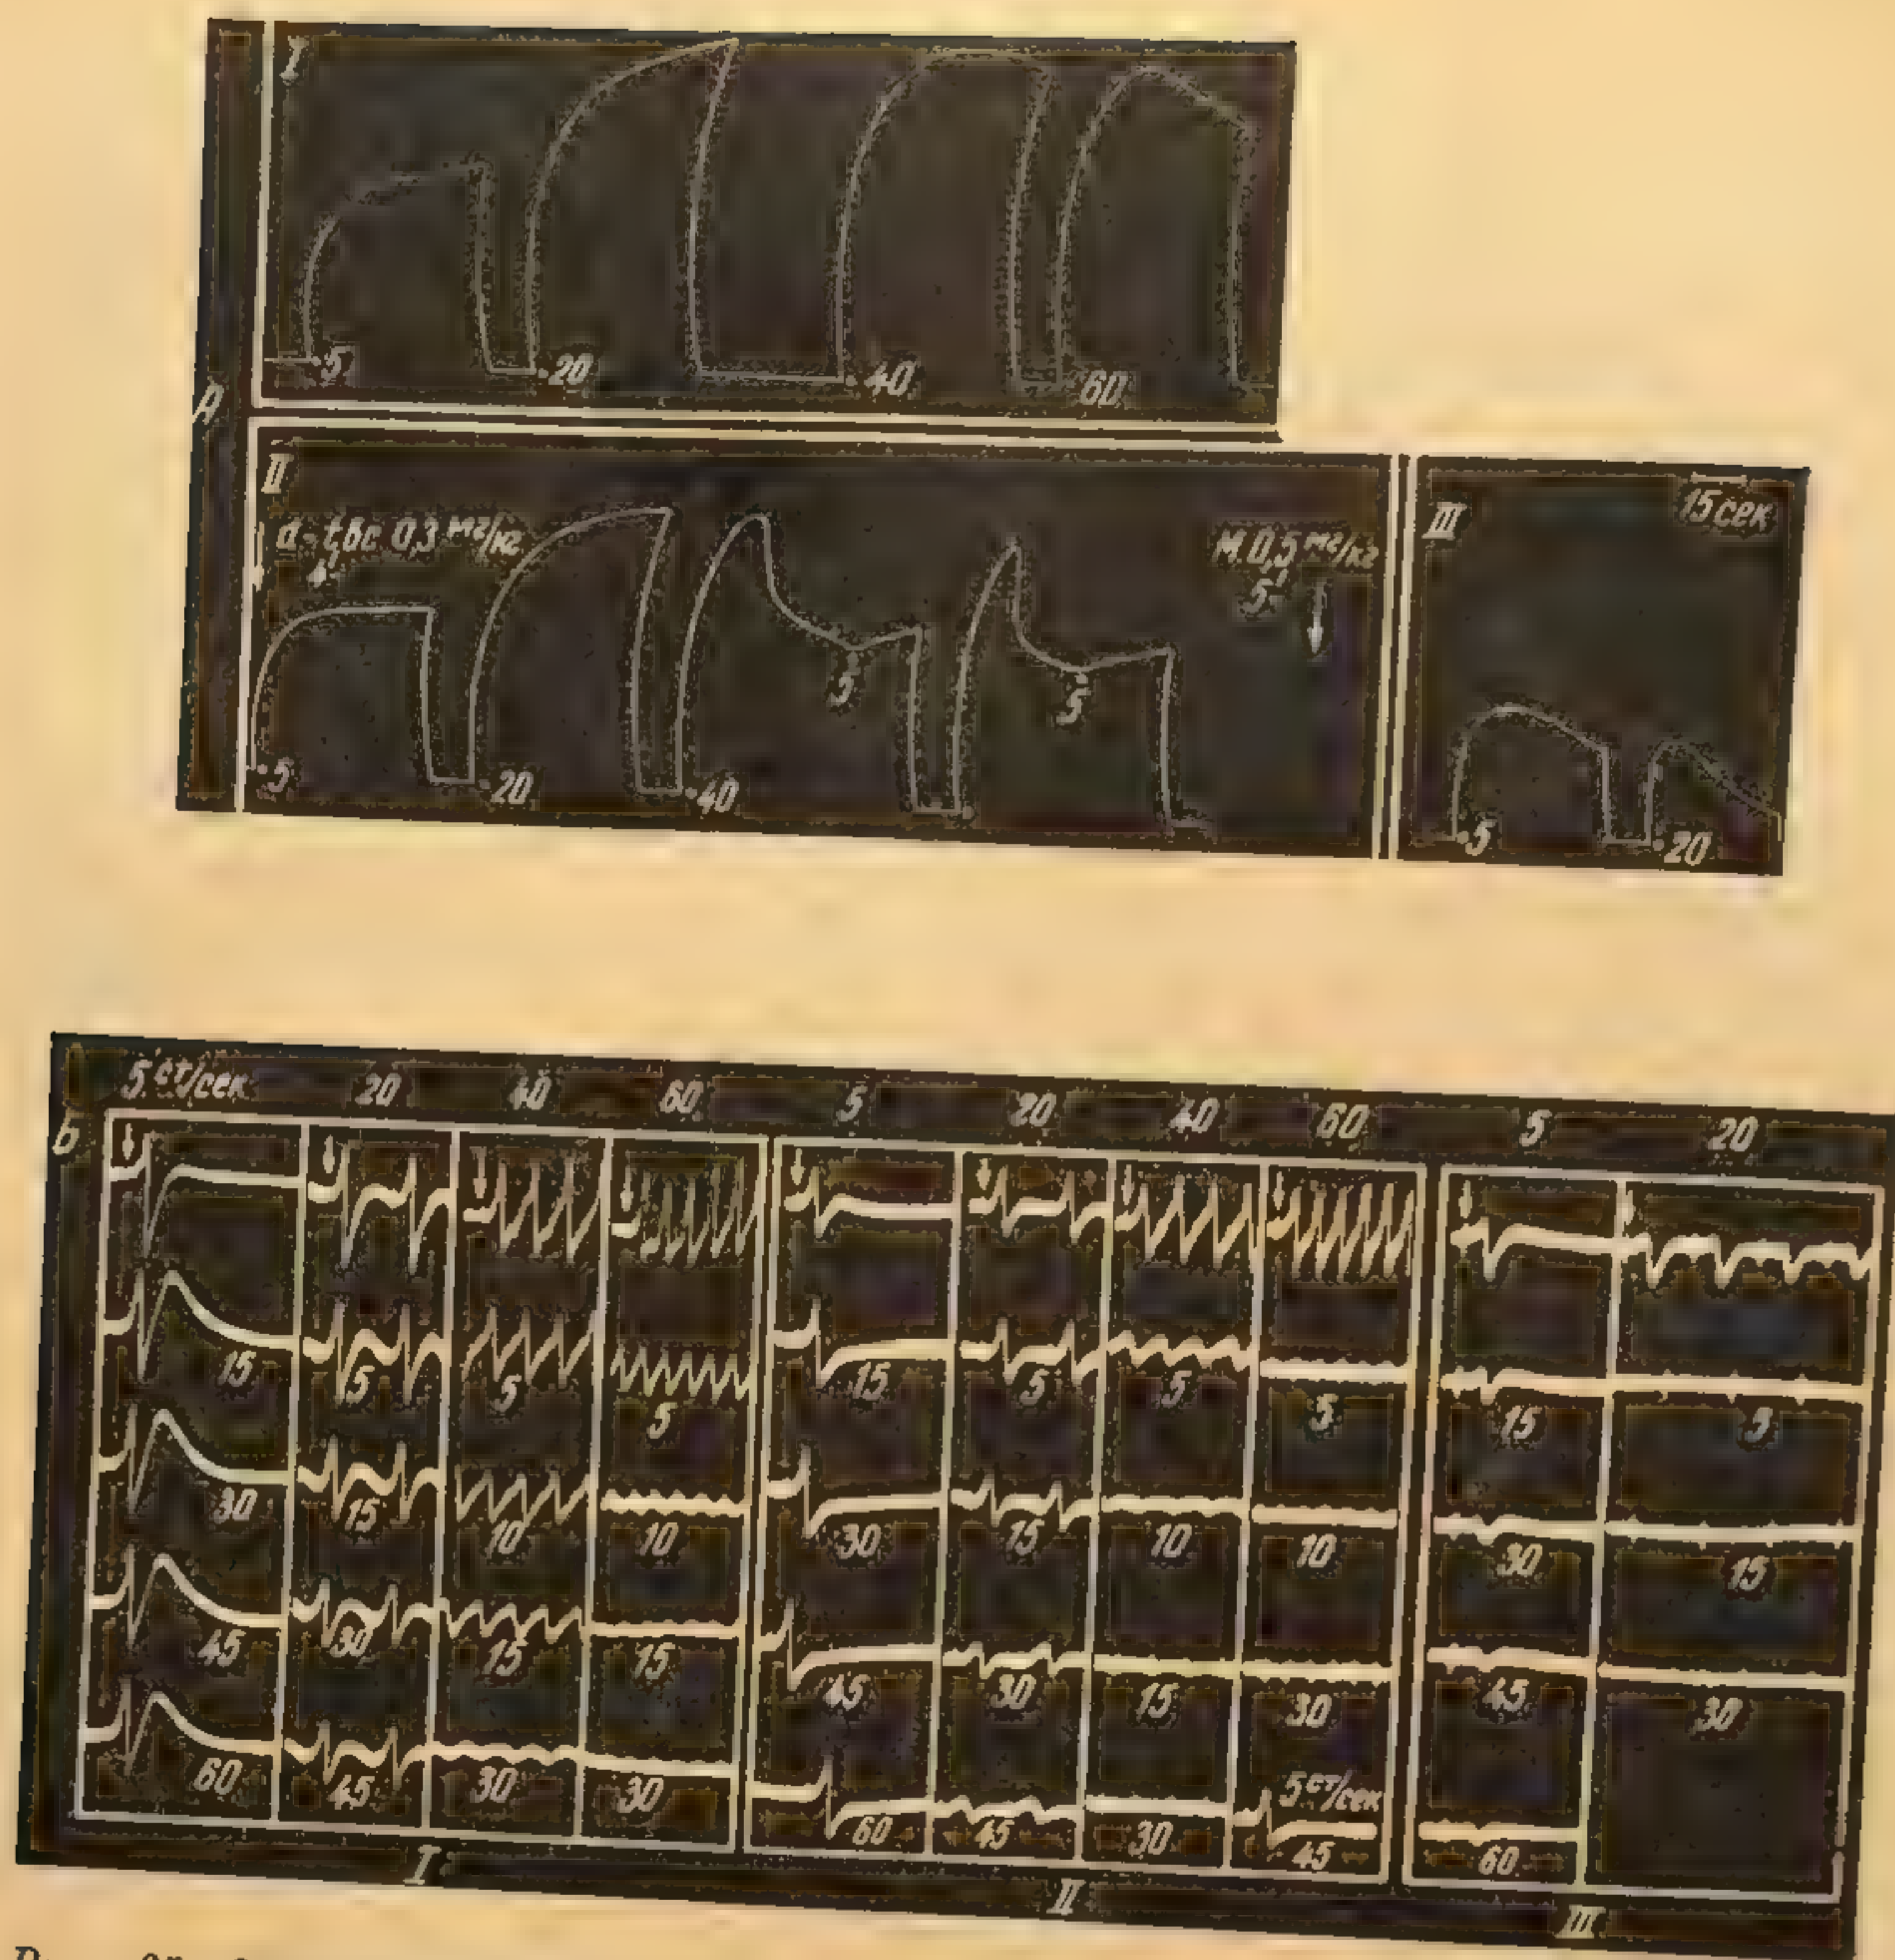 I
5
20
40
60
A
II
0,3 мг/кг
М. 0,5 мг/кг
5'
5
5
5
20
40
III
15 сек
5
20
Б
5 ст/сек 20 40 60 5 20 40 60 5 20
15 5 5 5 15 5 5 5 15 5
30 15 10 10 30 15 10 10 30 15
45 30 15 15 45 30 15 30 45 30
5 ст/сек
60 45 30 30 60 45 30 45 60
I II III